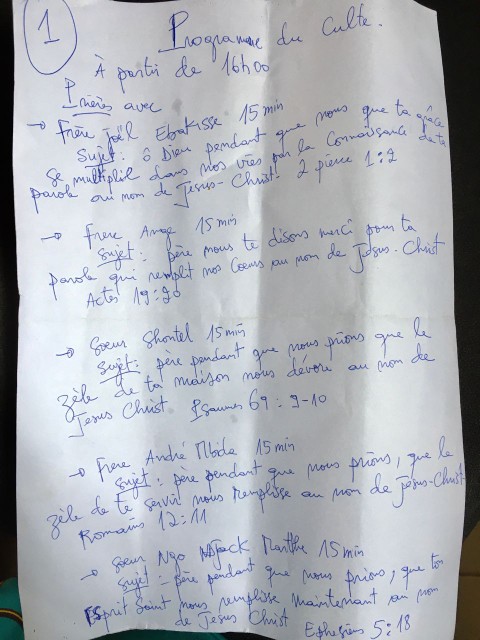 1
Programme du Culte.
À partir de 16h00
Prières avec
→ Frère Joël Ebakisse 15 min
Sujet : ô Dieu pendant que nous que ta grâce
se multiplie dans nos vies par la Connaissance de ta
parole au nom de Jesus-Christ. 2 pierre 1:2
→ Frere Ange 15 min
Sujet : père nous te disons merci pour ta
parole qui remplit nos Coeurs au nom de Jésus-Christ
Actes 19:20
→ Soeur Shontel 15 min
Sujet : père pendant que nous prions que le
zèle de ta maison nous dévore au nom de
Jesus Christ Psaumes 69 : 9-10
→ Frere André Mbida 15 min
Sujet : père pendant que nous prions, que le
zèle de te servir nous remplisse au nom de Jésus-Christ
Romains 12:11
→ Soeur Ngo Njack Marthe 15 min
Sujet : père pendant que nous prions, que ton
Esprit Saint nous remplisse maintenant au nom
de Jesus Christ Ephesiens 5:18